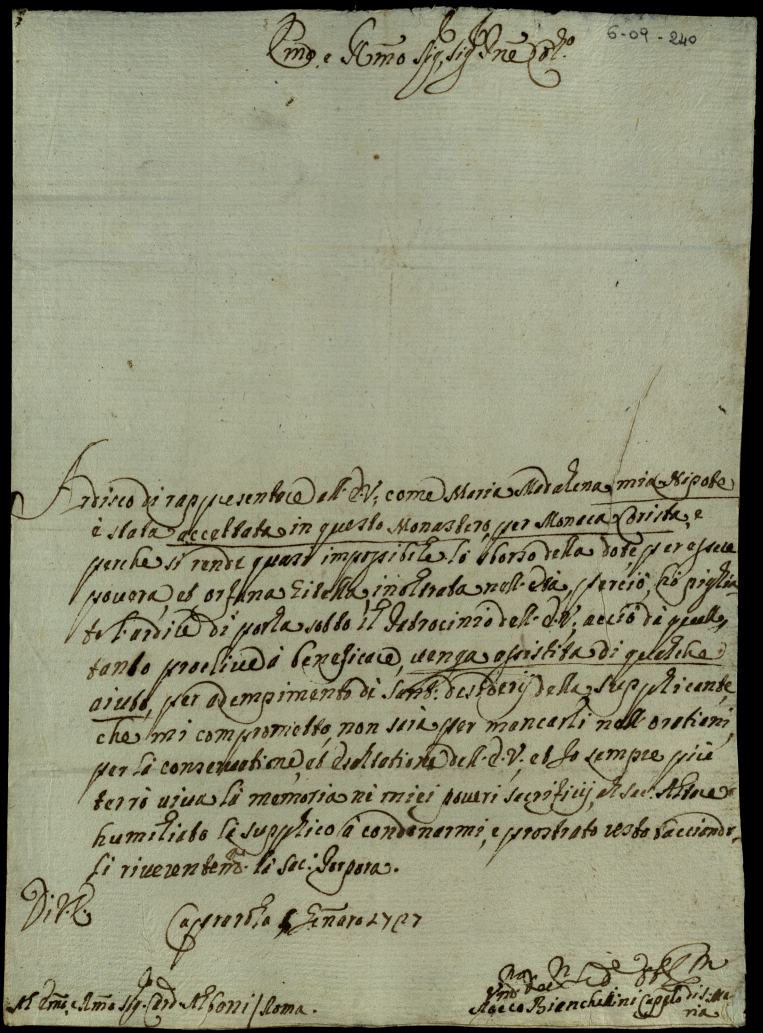 Em̃o, e R̃mo Sig, Sig Pñe Col.o
6-09-240
Ardisco di rappresentare all'E.V, come Maria Madalena mia Nipote
è stata accettata in questo Monastero, per Monaca Corista, e
perche si rende quasi impossibile lo sborso della dote per essere
povera, et orfana Zitella, inoltrata nell'età, perciò, hò piglia
to l'ardire di porla sotto il Patrocinio dell'E.V, acciò da quello
tanto proclive à beneficare, venga assistita di qualche
aiuto, per adempimento di Santi desiderij della supplicante,
che mi comprometto, non sarà per mancarli nell'orationi,
per la conservatione, et Esaltatione dell'E.V, et Io sempre più
terrò viva la memoria ne miei poveri sacrificij, al sac: Altare
humiliato la supplico à condonarmi, e prostrato resto bacciando
li riverentem.te la Sac: Porpora.
Di V.E.
Caprarola Gennaro 1727
All' Em̃o, e R̃mo Sig. Card Albani / Roma.
Rocco Bianchellini Capp.o di S. Ma
ria